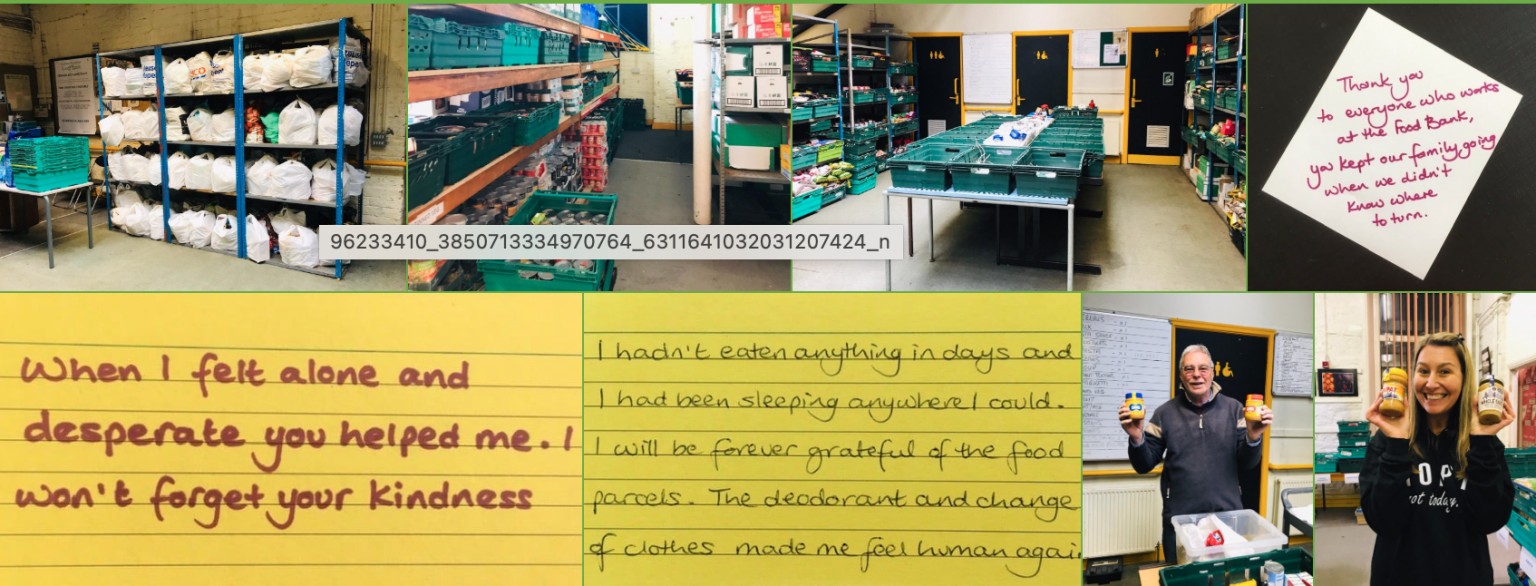 96233410_3850713334970764_6311641032031207424_n
Thank you
to everyone who works
at the Food Bank,
you kept our family going
when we didn't
know where
to turn.
When I felt alone and
desperate you helped me. I
won't forget your kindness
I hadn't eaten anything in days and
I had been sleeping anywhere I could.
I will be forever grateful of the food
parcels. The deodorant and change
of clothes made me feel human agai
not today.